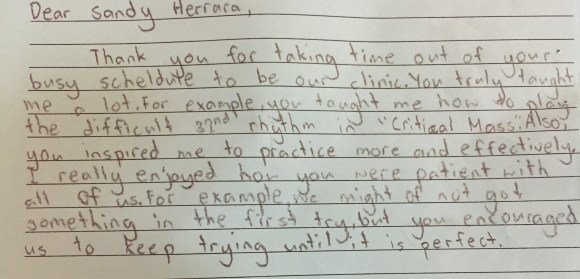 Dear Sandy Herrara,
Thank you for taking time out of your
busy scheldute to be our clinic. You truly taught
me a lot. For example, you taught me how do play
the difficult 32nd rhythm in "Critical Mass". Also,
you inspired me to practice more and effectively.
I really enjoyed how you were patient with
all of us. For example, we might of not got
something in the first try, but you encouraged
us to keep trying until it is perfect.